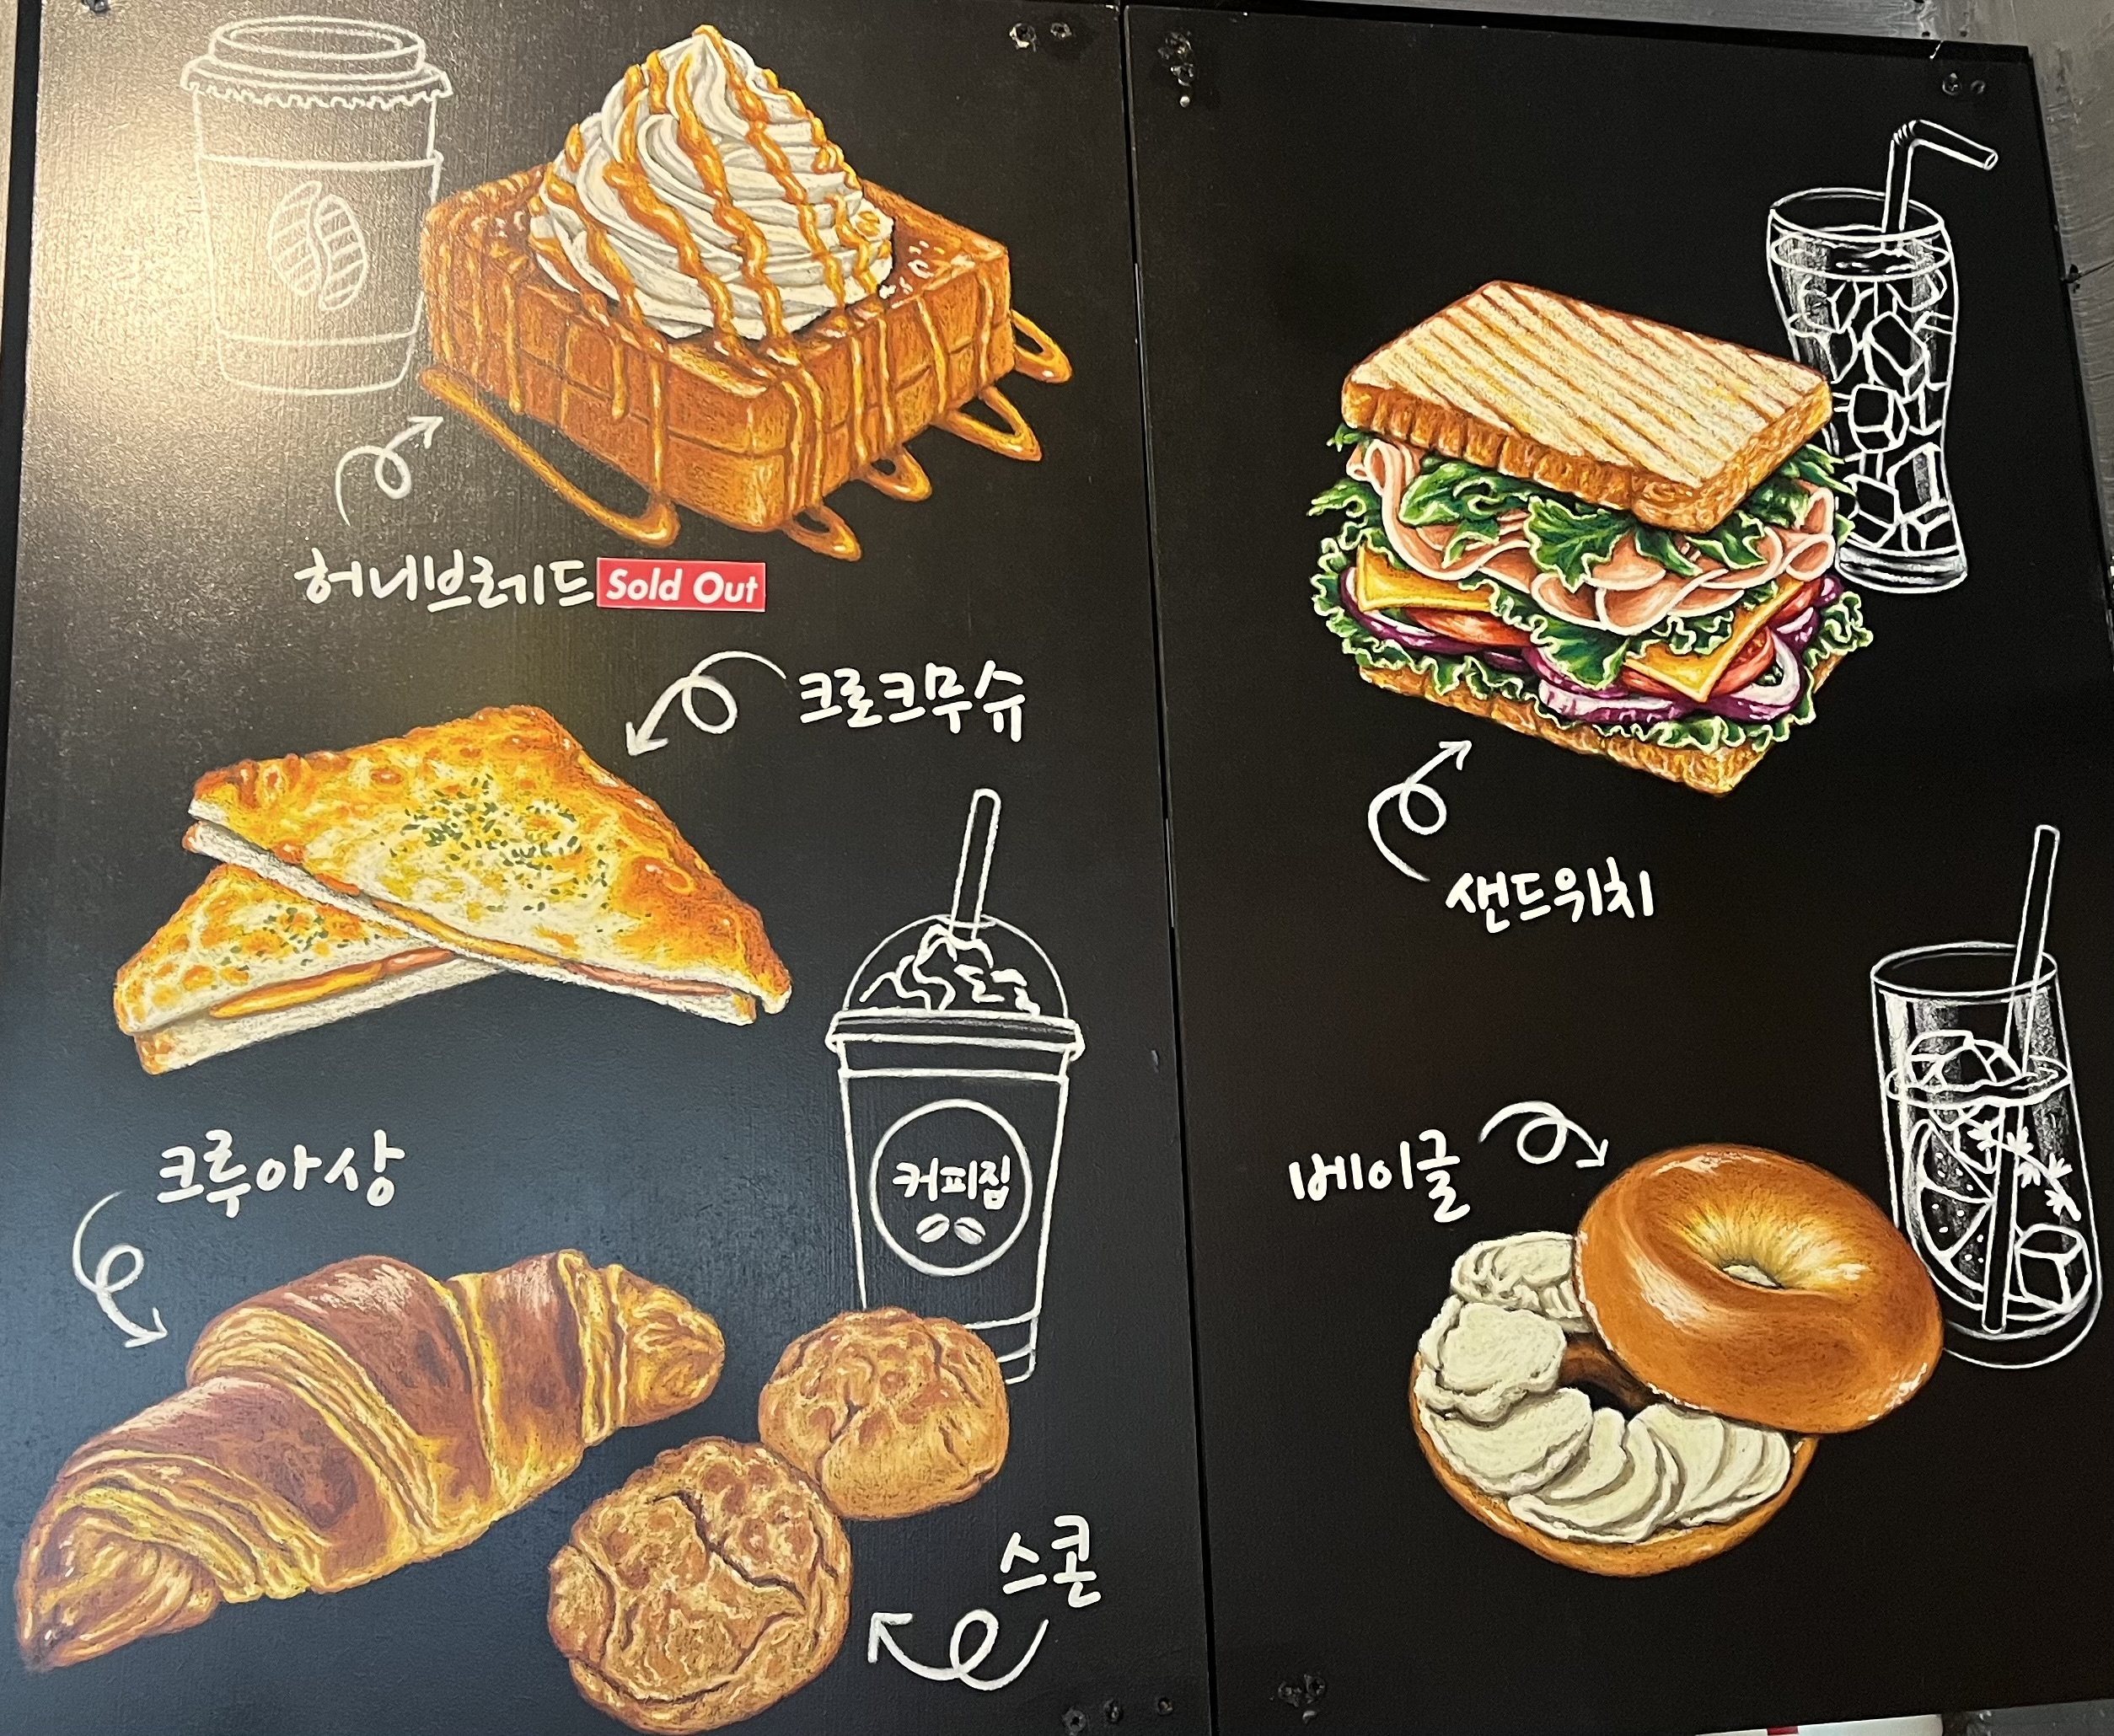 허니브레드 Sold Out
크로크무슈
크루아상
커피집
스콘
샌드위치
베이글